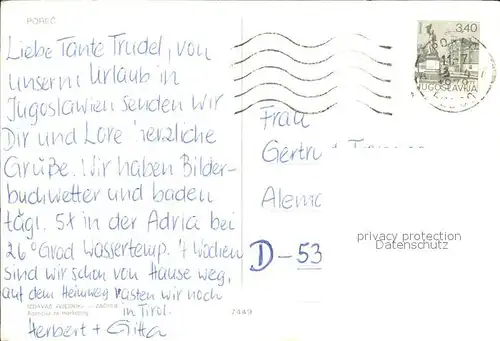 POREČ
Liebe Tante Trudel, von
unserm Urlaub in
Jugoslawien senden wir
Dir und Lore herzliche
Grüße. Wir haben Bilder-
buchwetter und baden
tägl. 5x in der Adria bei
26° Grad Wassertemp. 4 Wochen
sind wir schon von Hause weg,
auf dem Heimweg rasten wir noch
in Tirol.
Herbert + Gitta
3,40
JUGOSLAVIJA
Frau
D-53
privacy protection
Datenschutz
7449